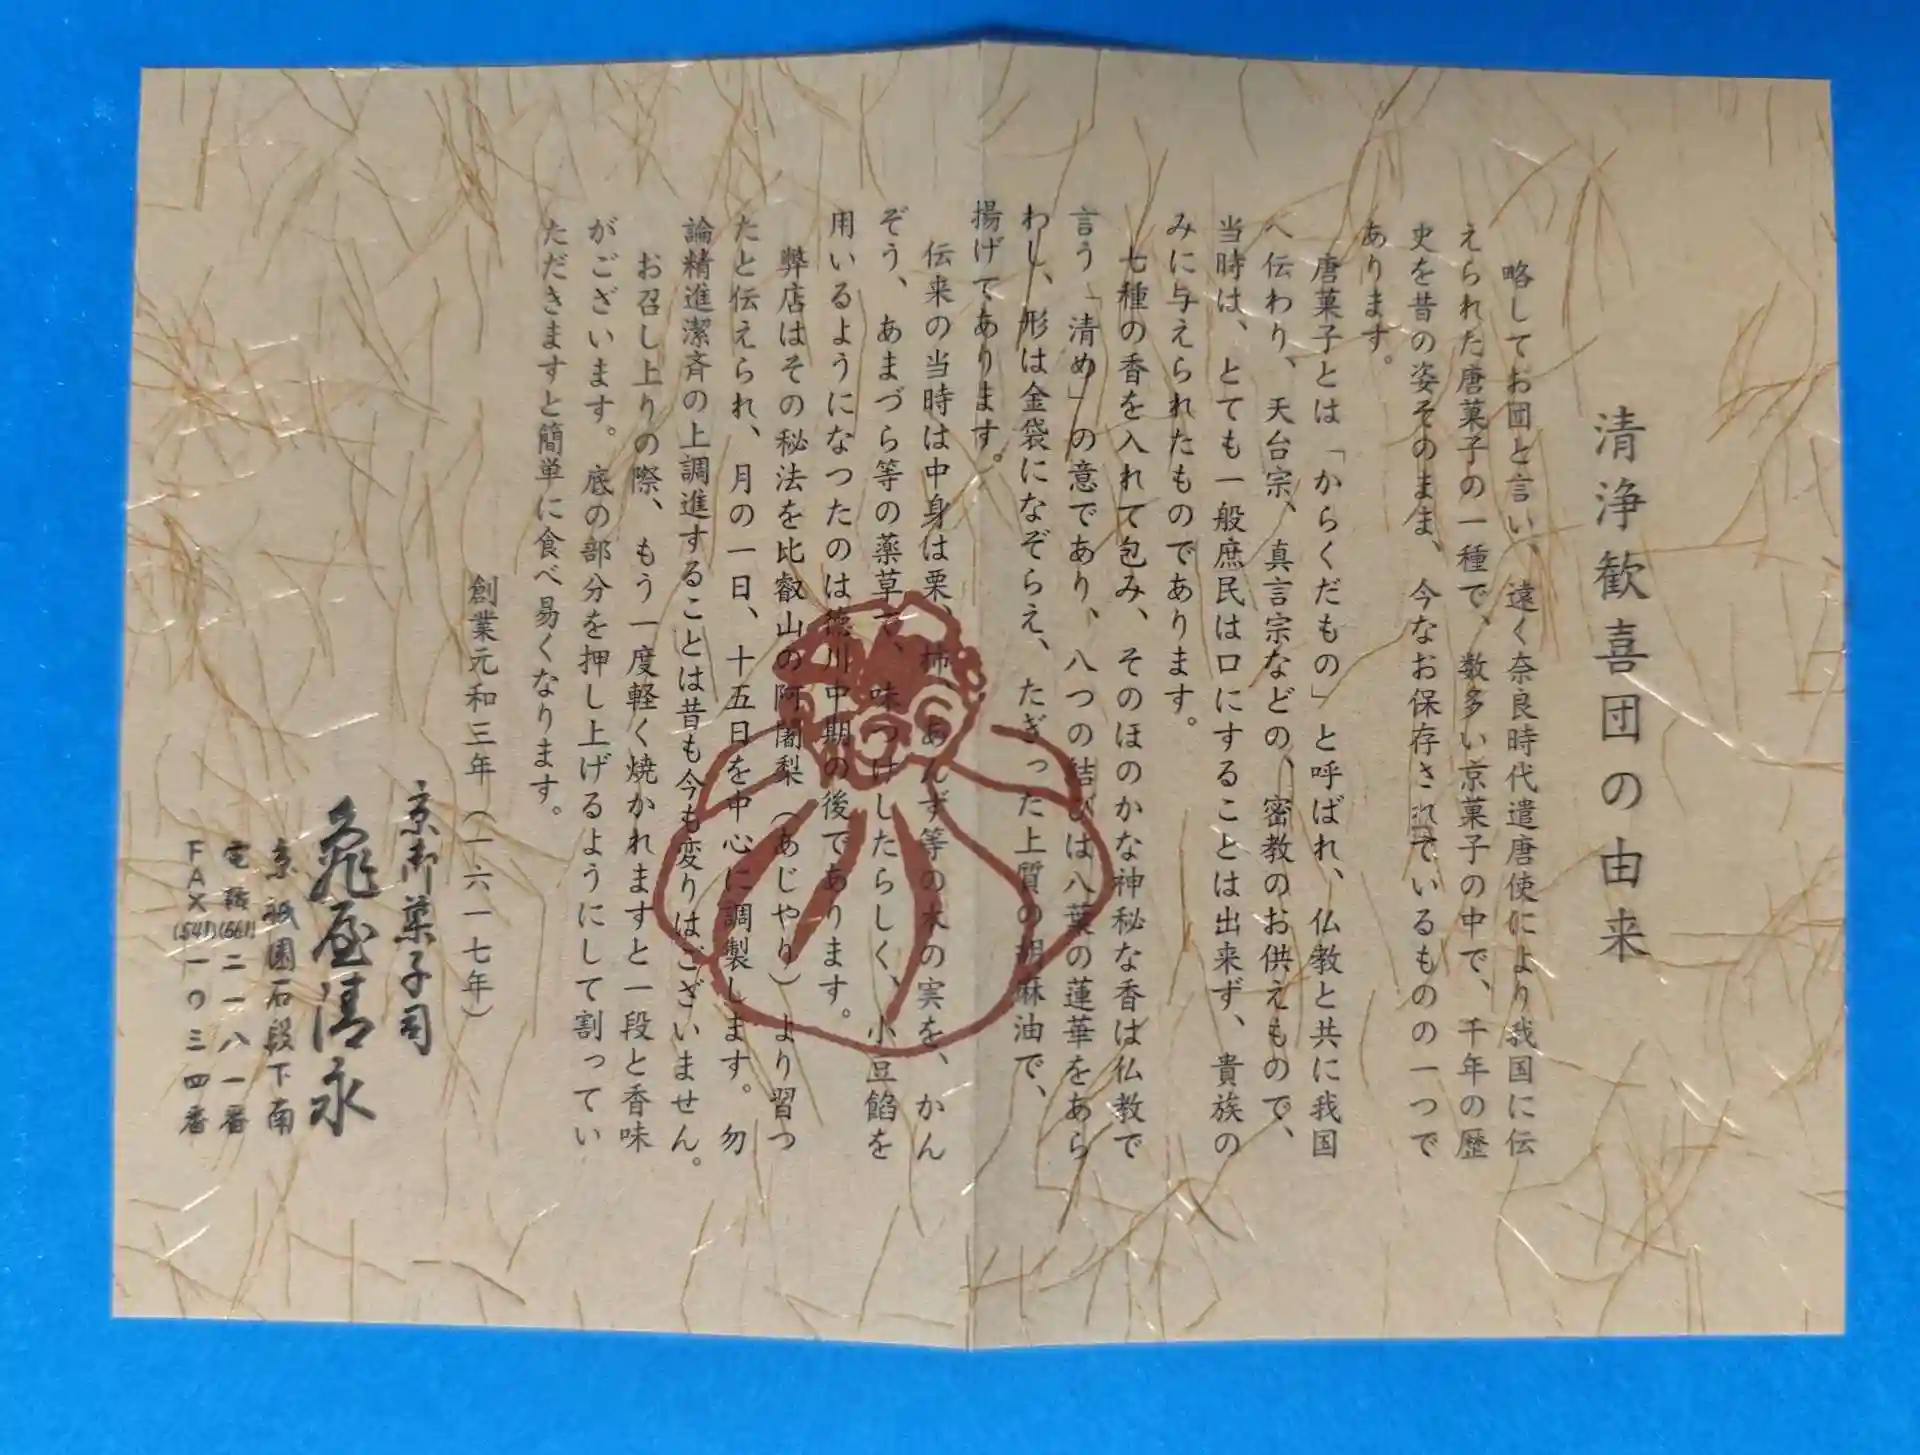 清浄歓喜団の由来
略してお団と言い、遠く奈良時代遣唐使により我国に伝
えられた唐菓子の一種で、数多い京菓子の中で、千年の歴
史を昔の姿そのまま、今なお保存されているものの一つで
あります。
唐菓子とは「からくだもの」と呼ばれ、仏教と共に我国
へ伝わり、天台宗、真言宗などの、密教のお供えもので、
当時は、とても一般庶民は口にすることは出来ず、貴族の
みに与えられたものであります。
七種の香を入れて包み、そのほのかな神秘な香は仏教で
言う「清め」の意であり、八つの結びは八葉の蓮華をあら
わし、形は金袋になぞらえ、たぎった上質の胡麻油で、
揚げてあります。
伝来の当時は中身は栗、柿、あんず等の木の実を、かん
ぞう、あまづら等の薬草で、味つけしたらしく、小豆餡を
用いるようになつたのは徳川中期の後であります。
弊店はその秘法を比叡山の阿闍梨（あじやり）より習つ
たと伝えられ、月の一日、十五日を中心に調製します。勿
論精進潔斉の上調進することは昔も今も変りはございません。
お召し上りの際、もう一度軽く焼かれますと一段と香味
がございます。底の部分を押し上げるようにして割ってい
ただきますと簡単に食べ易くなります。
創業元和三年（一六一七年）
京御菓子司
亀屋清永
京祇園石段下南
電話(561)二一八一番
FAX(541)一〇三四番